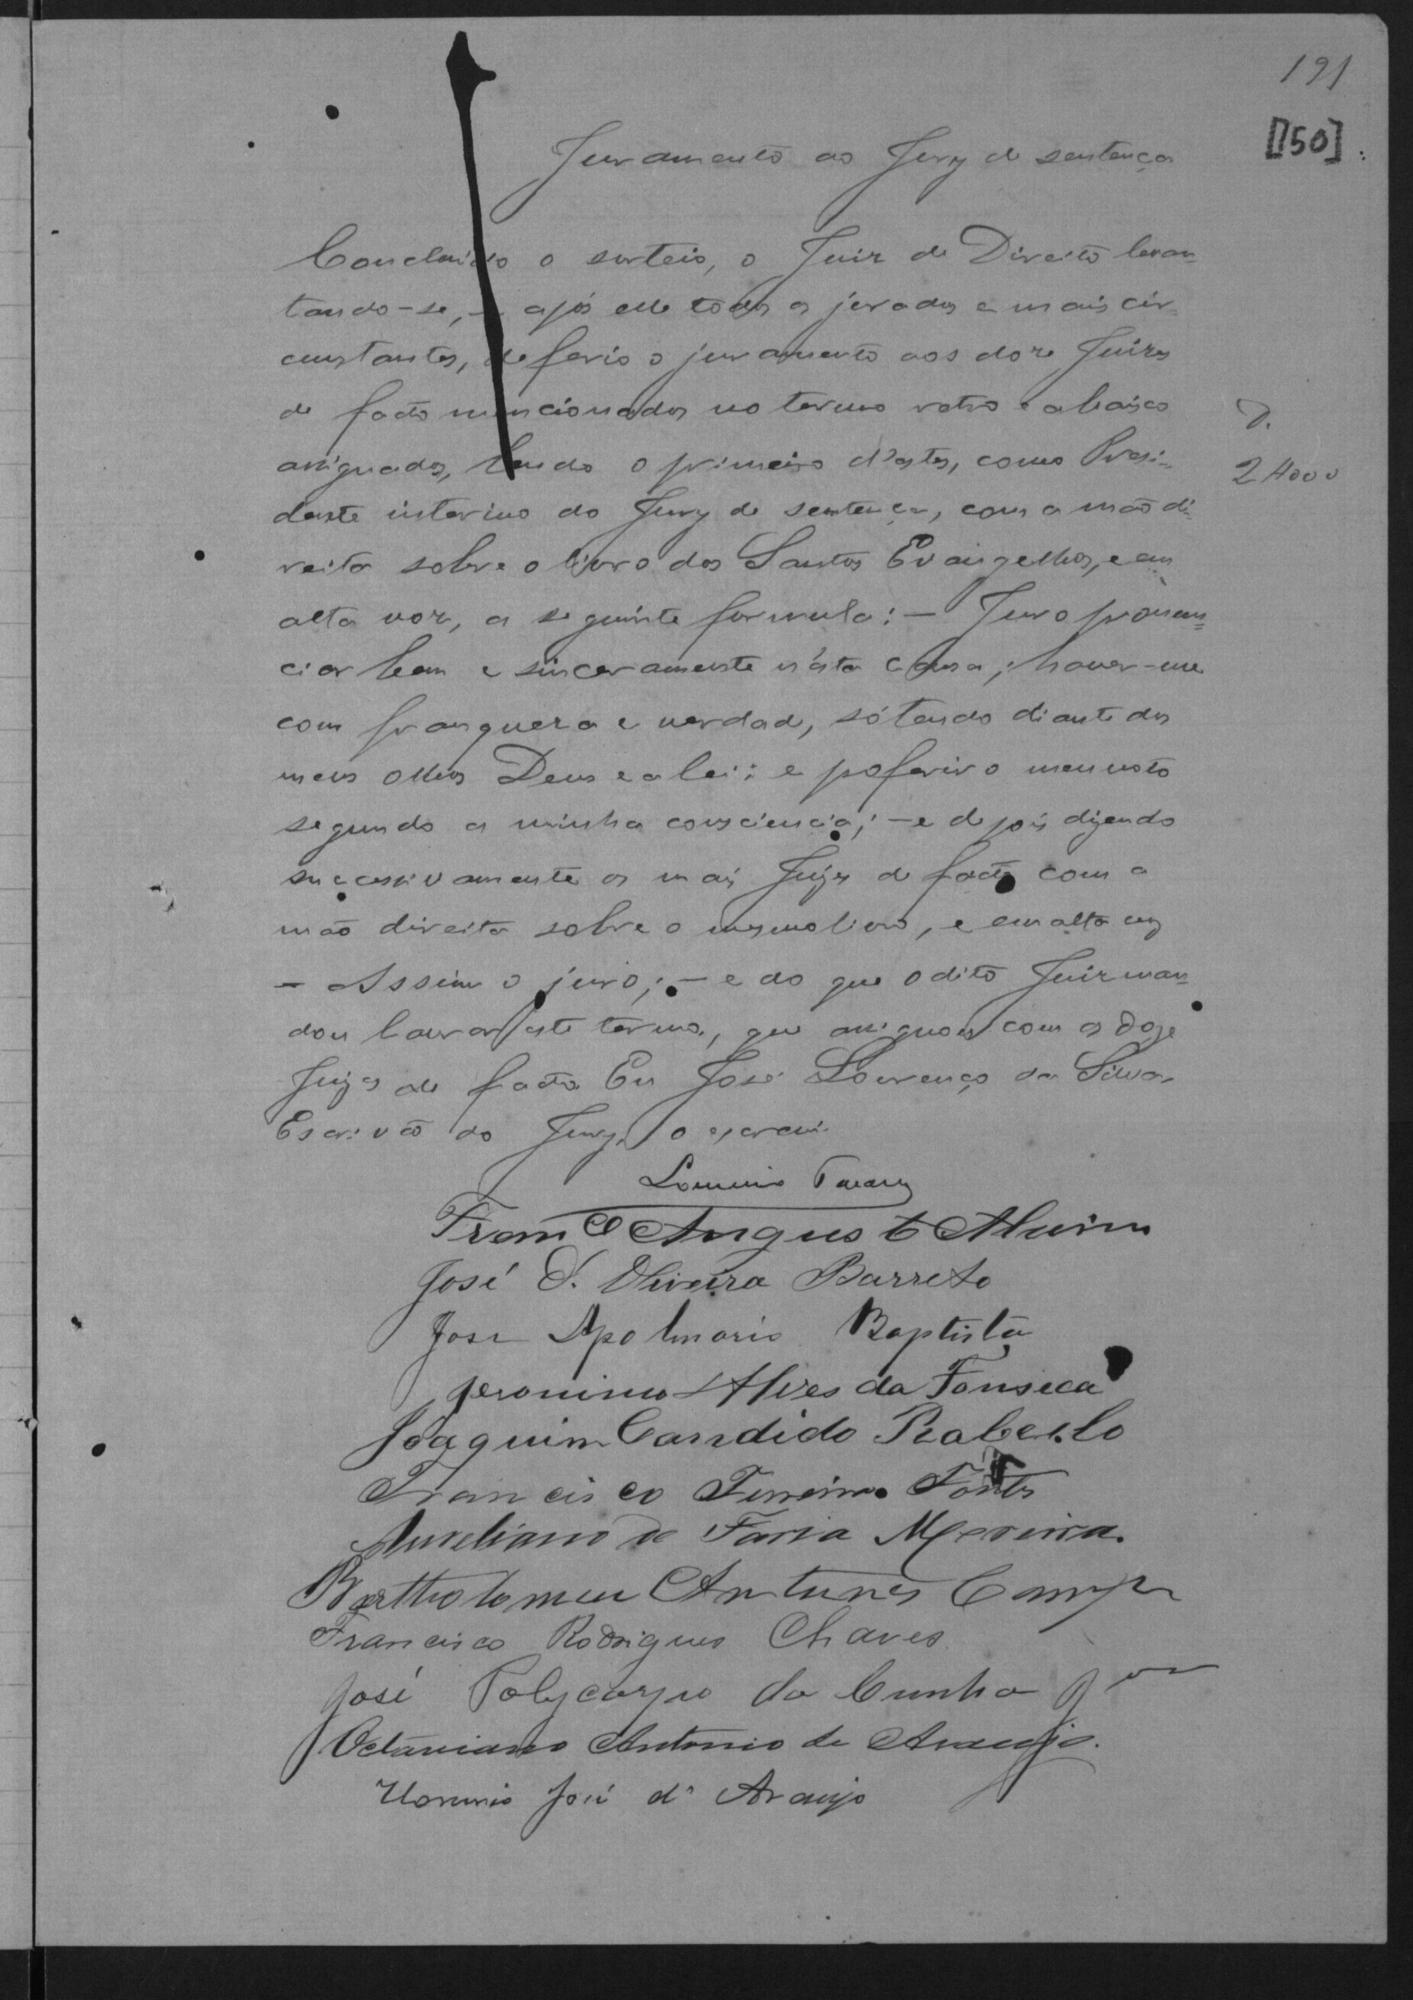 191
[150]
Juramento ao Jury de sentença
Concluido o sorteio, o Juiz de Direito levan-
tando-se, e após elle todos os jurados e mais cir-
cunstantes, deferio o juramento aos doze Juizes
de facto mencionados no termo retro e abaixo
assignados, lendo o primeiro d'estes, como Presi-
D.
24000
dente interino do Jury de sentença, com a mão di-
reita sobre o livro dos Santos Evangelhos, e em
alta voz, a seguinte formula: — Juro pronun-
ciar bem e sinceramente n'esta causa; haver-me
com franqueza e verdade, só tendo diante dos
meus olhos Deus e a lei; e proferir o meu voto
segundo a minha consciencia; — e depois dizendo
successivamente os mais Juizes de facto com a
mão direita sobre o mesmo livro, e em alta voz
— Assim o juro; — e do que o dito Juiz man-
dou lavrar este termo, que assignou com os doze
Juizes de facto Eu José Lourenço da Silva
Escrivão do Jury, o escrevi
Tavares
Franco Augusto Alvim
José S. Oliveira Barreto
José Apolinario Baptista
Jeronimo Alves da Fonseca
Joaquim Candido Rabello
Francisco Ferreira Fontes
Aureliano de Faria Moreira.
Bartholomeu Antunes Campos
Francisco Rodrigues Chaves
José Polycarpo da Cunha Jor
Octaviano Antonio de Araujo.
Honorio José d'Araujo